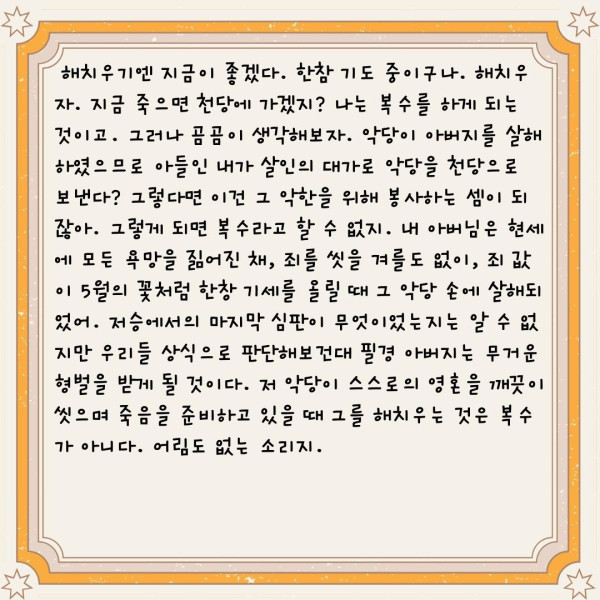 해치우기엔 지금이 좋겠다. 한참 기도 중이구나. 해치우
자. 지금 죽으면 천당에 가겠지? 나는 복수를 하게 되는
것이고. 그러나 곰곰이 생각해보자. 악당이 아버지를 살해
하였으므로 아들인 내가 살인의 대가로 악당을 천당으로
보낸다? 그렇다면 이건 그 악한을 위해 봉사하는 셈이 되
잖아. 그렇게 되면 복수라고 할 수 없지. 내 아버님은 현세
에 모든 욕망을 짊어진 채, 죄를 씻을 겨를도 없이, 죄 값
이 5월의 꽃처럼 한창 기세를 올릴 때 그 악당 손에 살해되
었어. 저승에서의 마지막 심판이 무엇이었는지는 알 수 없
지만 우리들 상식으로 판단해보건대 필경 아버지는 무거운
형벌을 받게 될 것이다. 저 악당이 스스로의 영혼을 깨끗이
씻으며 죽음을 준비하고 있을 때 그를 해치우는 것은 복수
가 아니다. 어림도 없는 소리지.